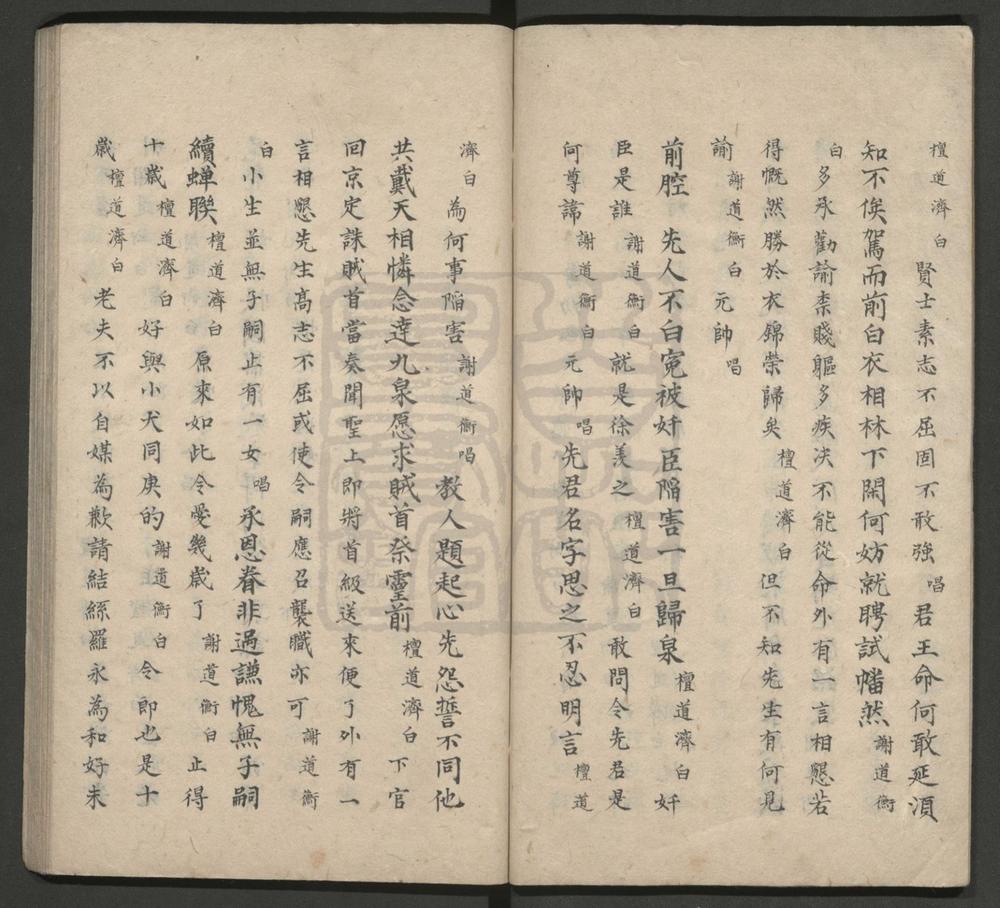 檀道濟白賢士素志不屈固不敢強唱君王命何敢延湏
知不俟駕而前白衣相林下閑何妨就聘試幡然謝道衡
白多承勸諭柰賤軀多疾决不能從命外有一言相懇若
得慨然勝於衣錦榮歸矣檀道濟白但不知先生有何見
諭謝道衡白元帥唱
前腔先人不白寃被奸臣陷害一旦歸泉檀道濟白奸
臣是誰謝道衡白就是徐羡之檀道濟白敢問令先君是
何尊諱謝道衡白元帥唱先君名字思之不忍明言檀道
濟白為何事陷害謝道衡唱教人題起心先怨誓不同他
共戴天相憐念達九泉愿求賊首祭靈前檀道濟白下官
回京定誅賊首當奏聞聖上即將首級送來便了外有一
言相懇先生高志不屈或使令嗣應召襲職亦可謝道衡
白小生並無子嗣止有一女唱承恩眷非過謙愧無子嗣
續蟬聨檀道濟白原來如此令愛幾歲了謝道衡白止得
十歲檀道濟白好與小犬同庚的謝道衡白令郎也是十
歲檀道濟白老夫不以自媒為歉請結絲羅永為和好未